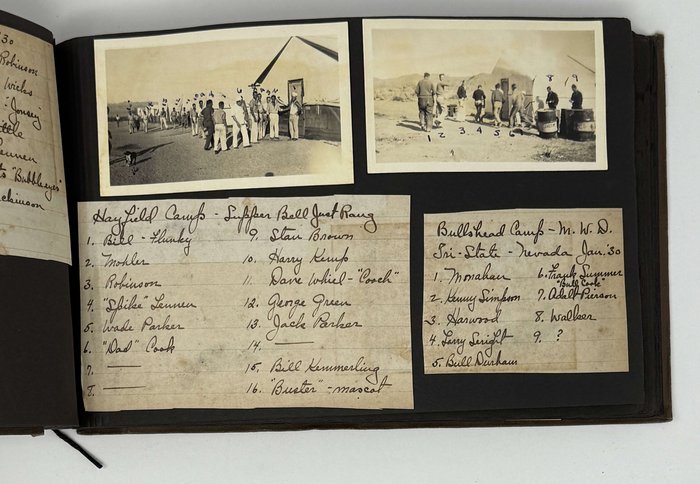 '30
Robinson
Wicks
Jonsey
Lennen
"Bubbleeyes"
Hayfield Camp - Supper Bell Just Rang
1. Bill - Flunky
2. Mohler
3. Robinson
4. "Spike" Lennen
5. Wade Parker
6. "Dad" Cook
7. ——
8. ——
9. Stan Brown
10. Harry Kemp
11. Dave Whiel - "Coach"
12. George Green
13. Jack Parker
14. ——
15. Bill Kemmerling
16. "Buster" - mascot
1 2 3 4 5 6
8 9
Bullshead Camp - M. W. D.
Tri-State - Nevada Jan. '30
1. Monahan
2. Kenny Simpson
3. Harwood
4. Terry Seright
5. Bull Durham
6. Frank Summer
"Bull Cook"
7. Adelt Pierson
8. Walker
9. ?